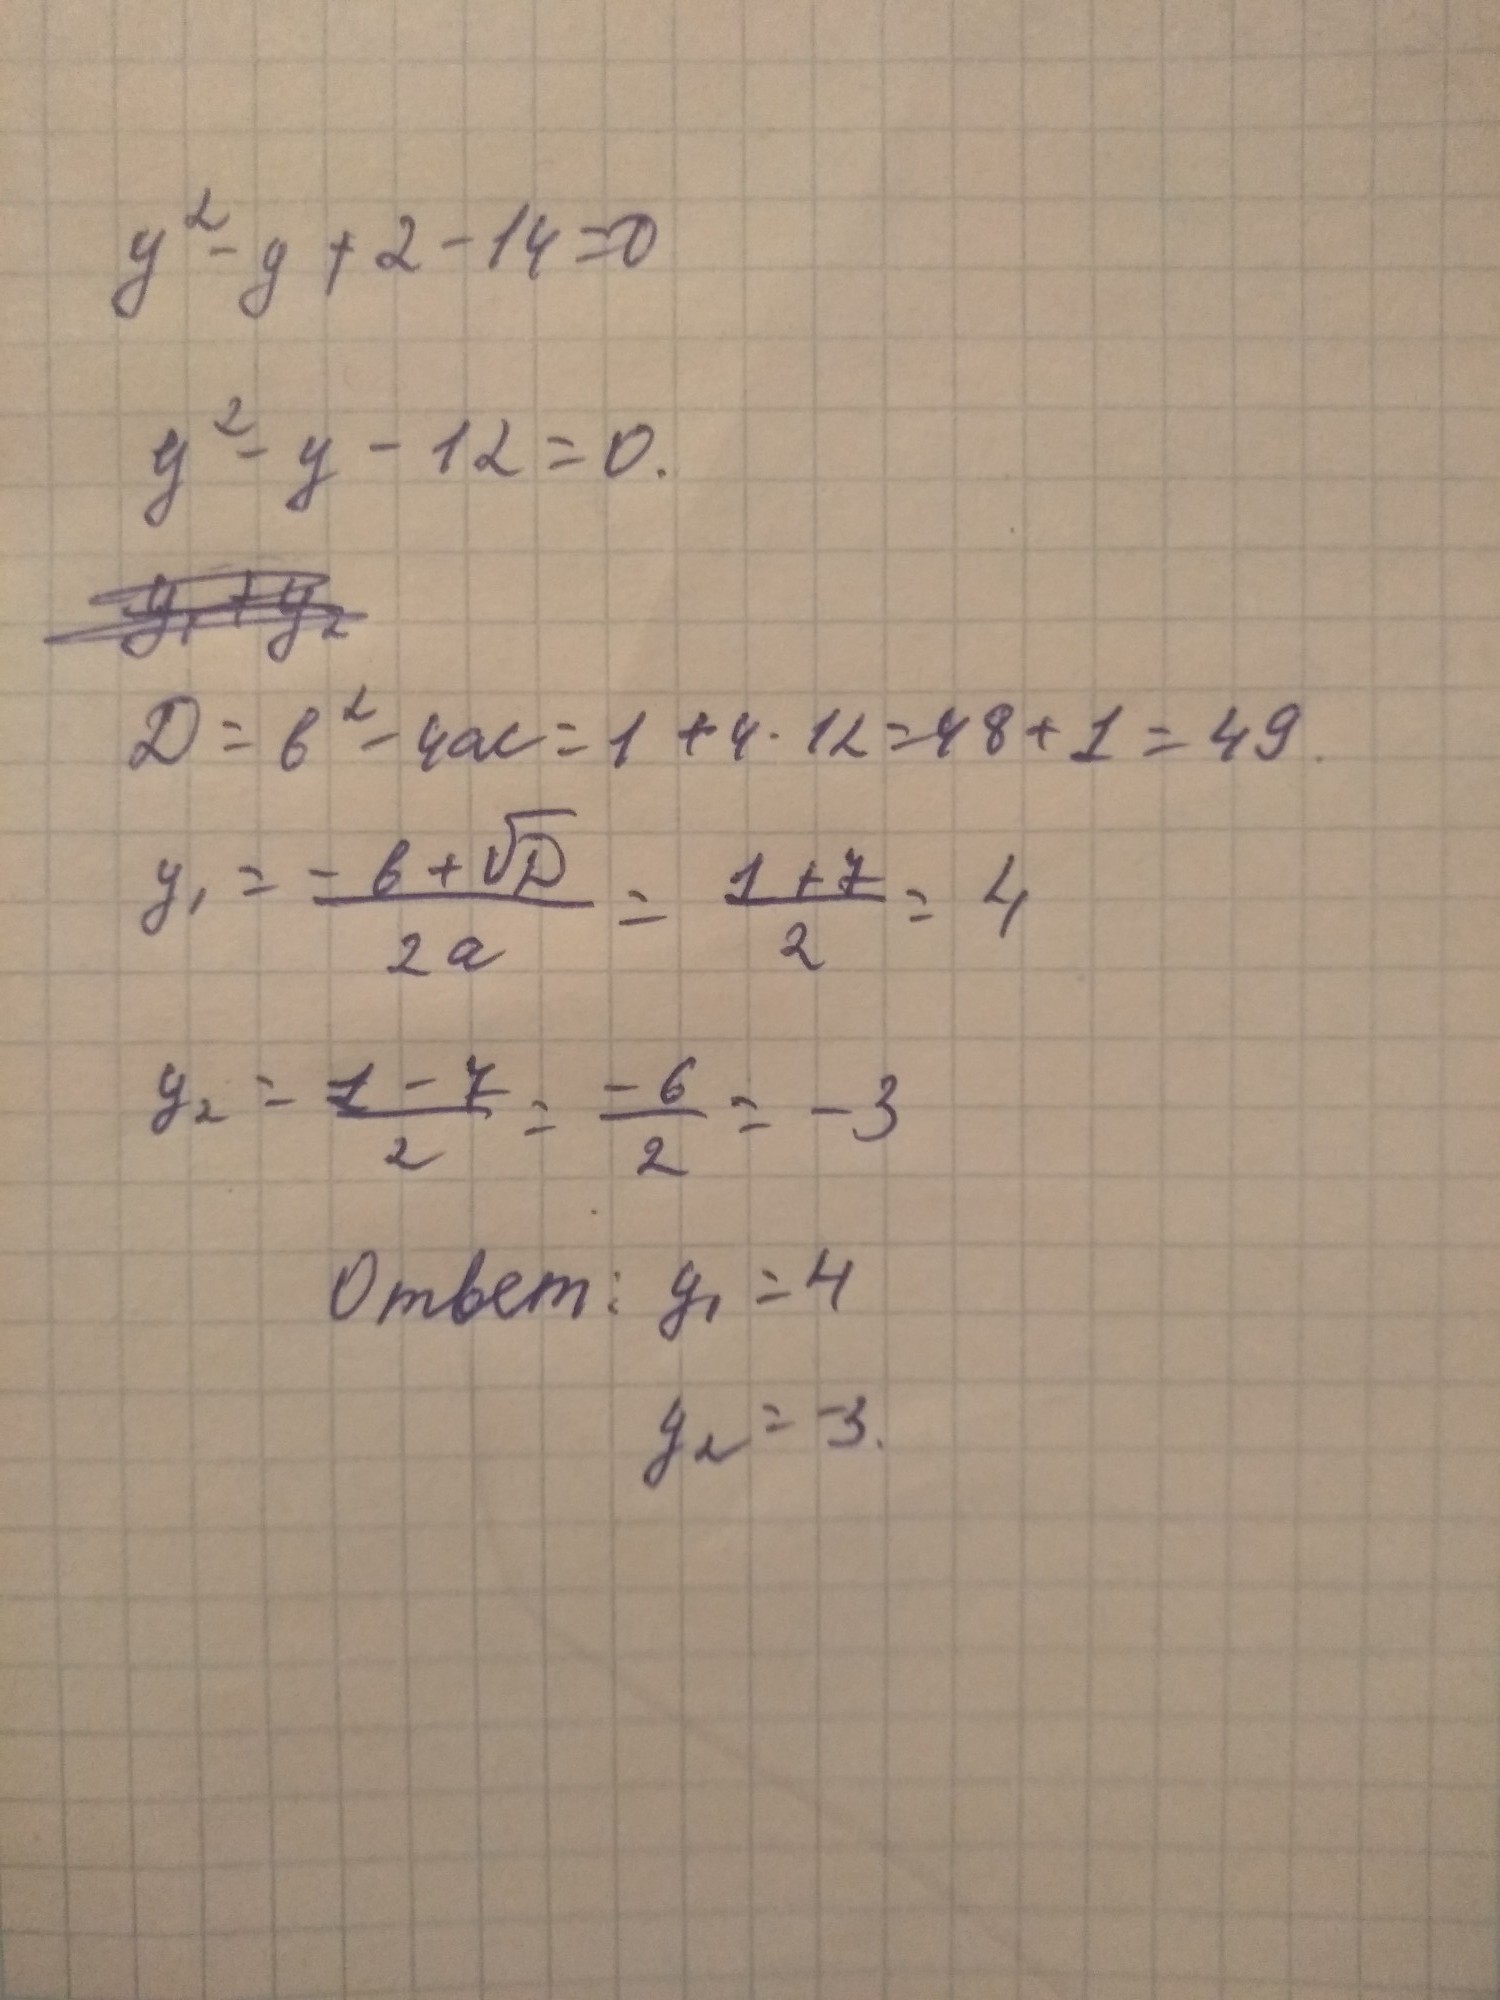 y² - y + 2 - 14 = 0
y² - y - 12 = 0.
y₁ + y₂
D = b² - 4ac = 1 + 4 · 12 = 48 + 1 = 49.
y₁ = (-b + √D)/(2a) = (1 + 7)/2 = 4
y₂ = (1 - 7)/2 = -6/2 = -3
Ответ: y₁ = 4
y₂ = -3.